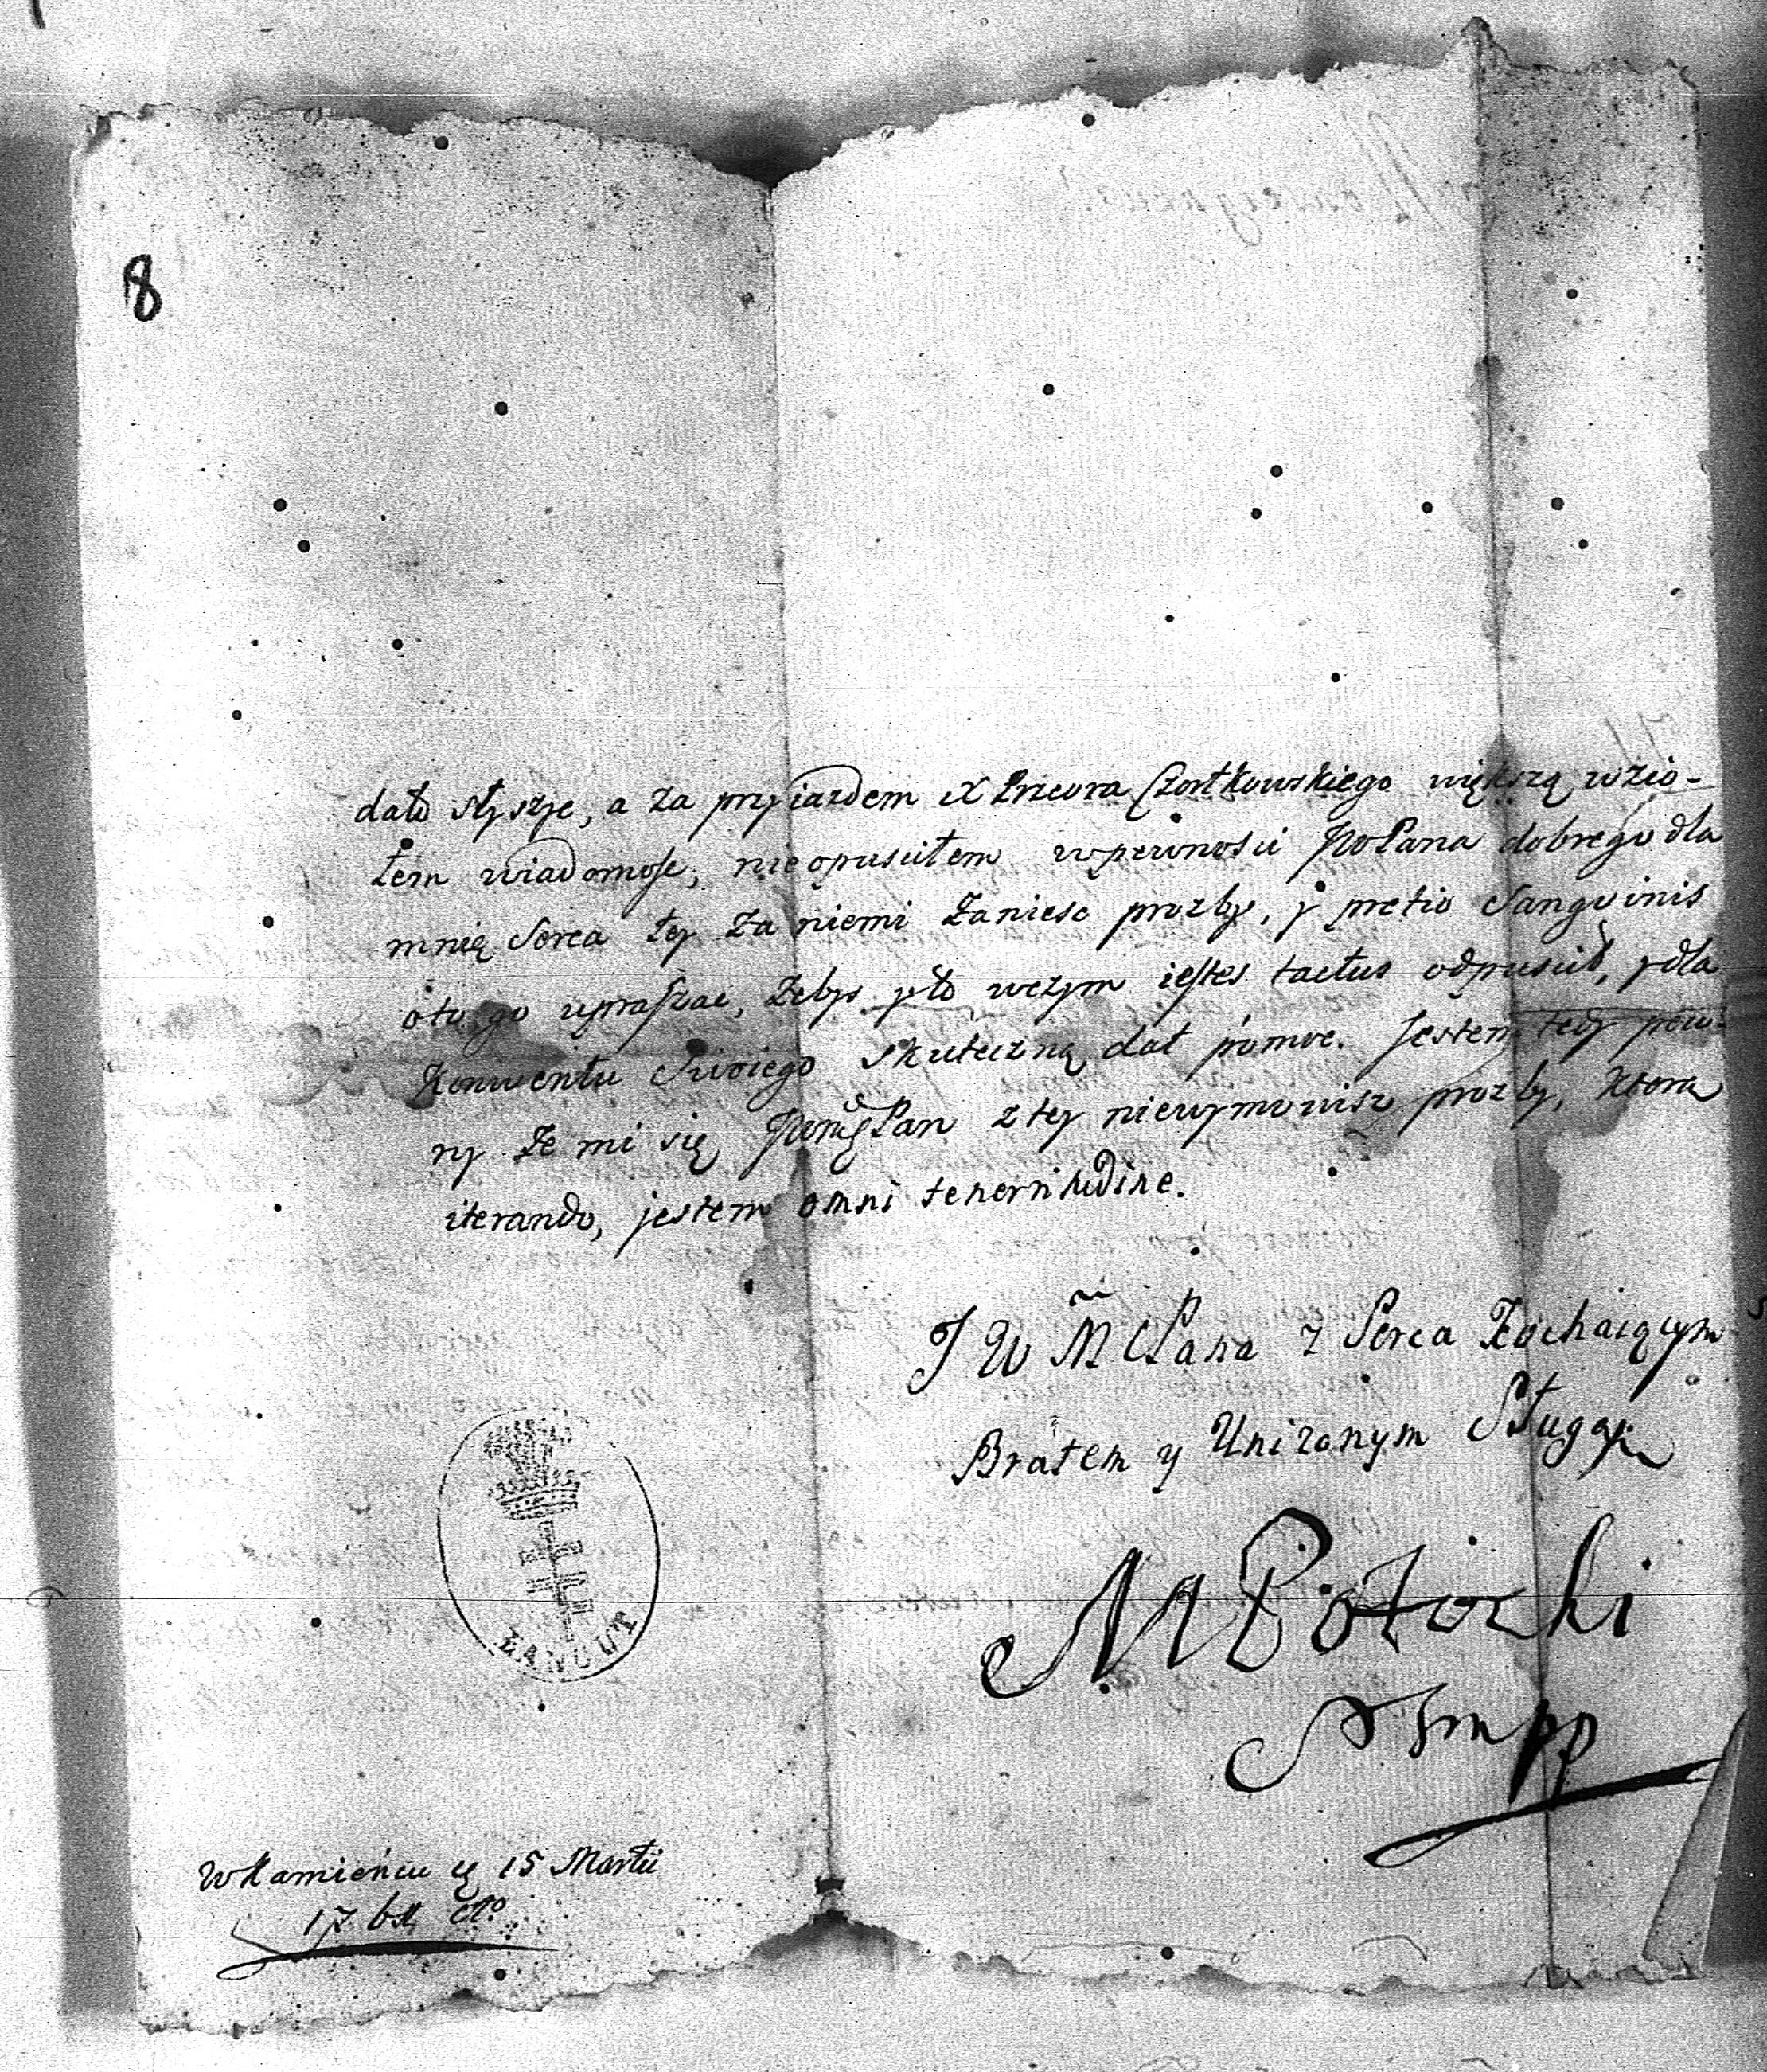 8
dało słyszę, a za przyiazdem X Przeora Czortkowskiego większą wzio-
łem wiadomość, nieopuściłem wpewności Pana dobrego dla
mnię Serca tey za niemi zanieść prozby, y pretio Sangvinis
oto go upraszać, żebyś yto wczym iesteś tactus odpuścił, y dla
Konwentu Swoiego skuteczną dał pomoc. Jestem tedy pew-
ny że mi się Pan z tey niewymowisz prozby, ktorą
iterando, jestem omni teneritudine.
J W M Pana z Serca Kochaiącym
Bratem y Uniżonym Sługą
M Potocki
mpp
WKamieńcu 15 Martii
17
ŁAŃCUT